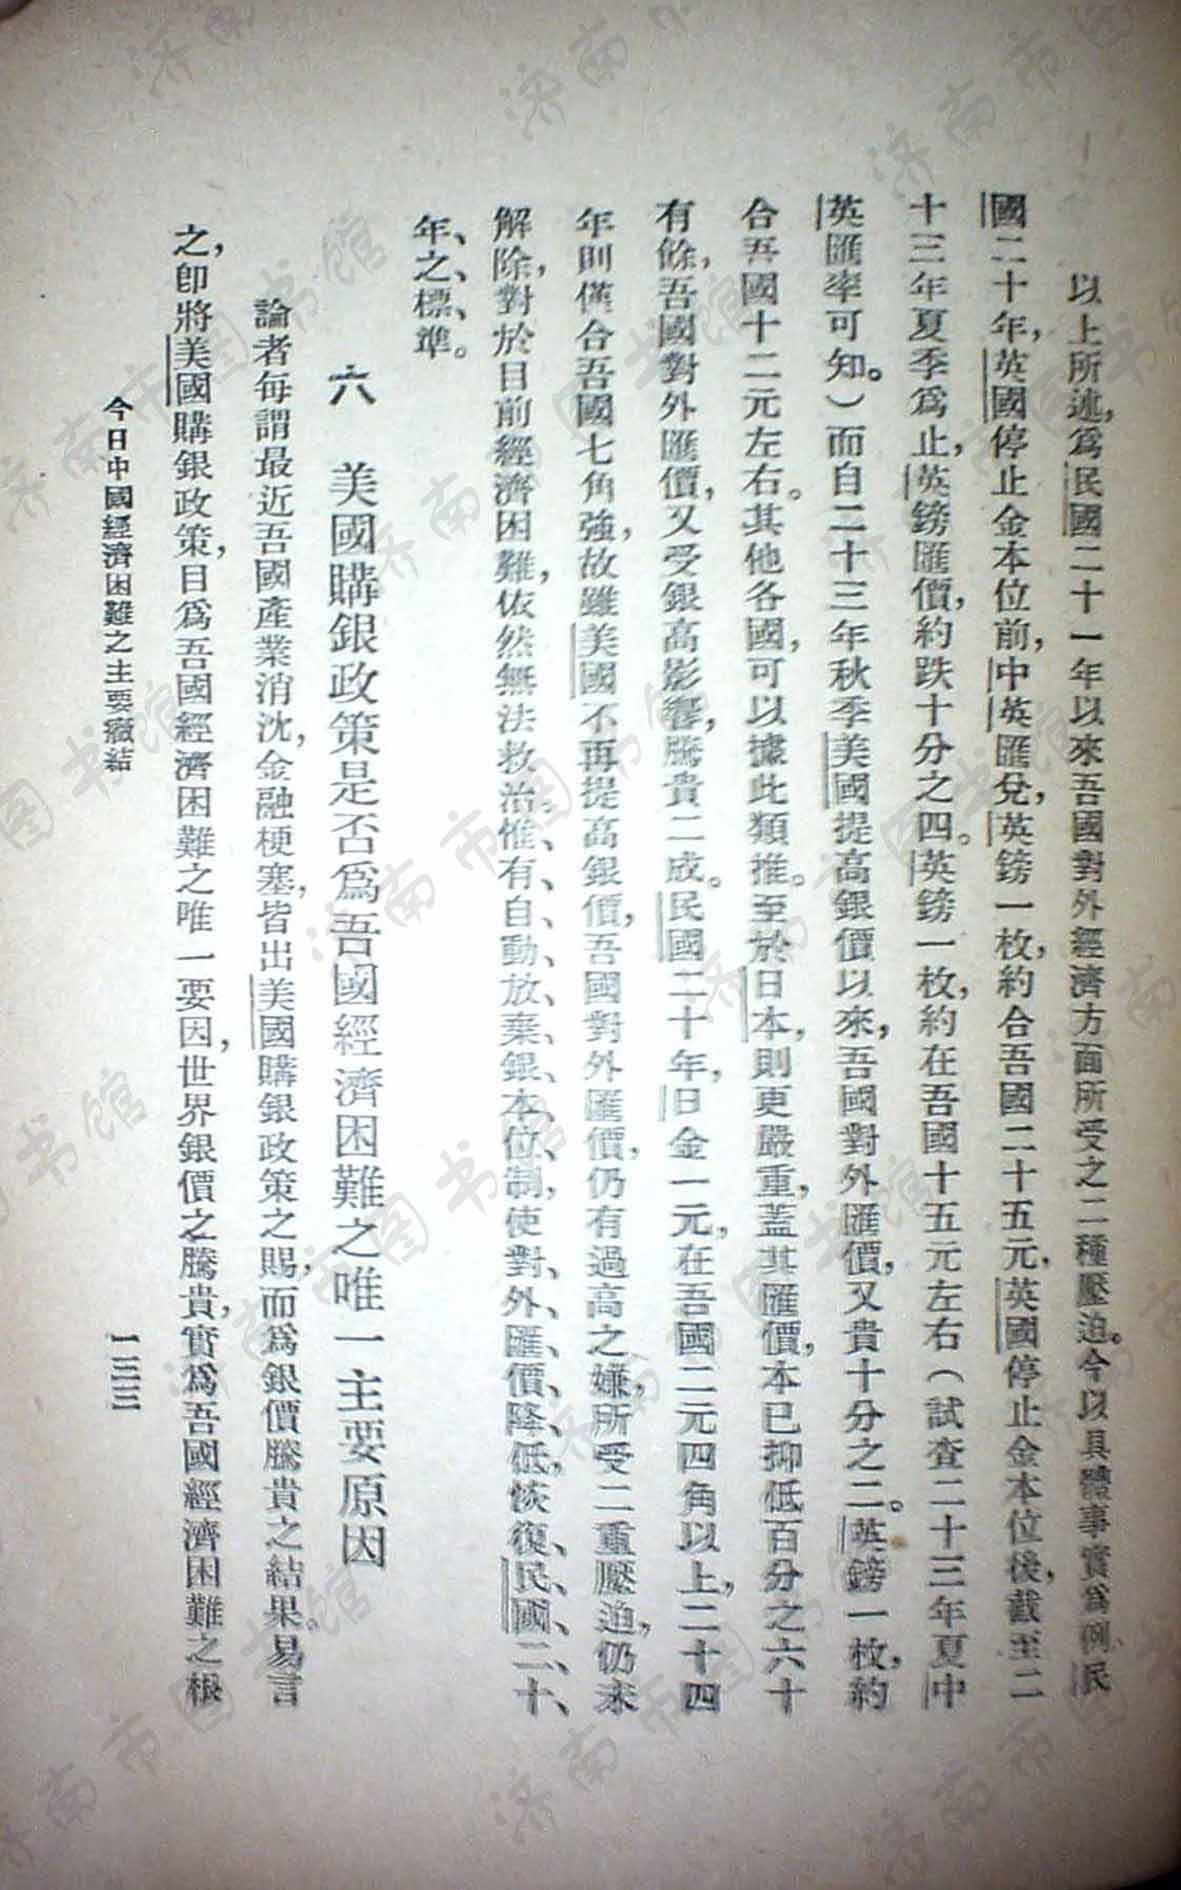 以上所述，爲民國二十一年以來吾國對外經濟方面所受之二種壓迫。今以具體事實爲例，民
國二十年，英國停止金本位前，中英匯兌，英鎊一枚，約合吾國二十五元，英國停止金本位後，截至二
十三年夏季爲止，英鎊匯價，約跌十分之四。英鎊一枚，約在吾國十五元左右（試查二十三年夏中
英匯率可知。）而自二十三年秋季美國提高銀價以來，吾國對外匯價，又貴十分之二。英鎊一枚，約
合吾國十二元左右。其他各國，可以據此類推。至於日本，則更嚴重，蓋其匯價，本已抑低百分之六十
有餘，吾國對外匯價，又受銀高影響，騰貴二成。民國二十年，日金一元，在吾國二元四角以上，二十四
年則僅合吾國七角強，故雖美國不再提高銀價，吾國對外匯價，仍有過高之嫌，所受二重壓迫，仍未
解除，對於目前經濟困難，依然無法救治，惟、有、自、動、放、棄、銀、本、位、制，使、對、外、匯、價、降、低，恢、復、民、國、二、十、
年、之、標、準。
六　美國購銀政策是否爲吾國經濟困難之唯一主要原因
論者每謂最近吾國產業消沈，金融梗塞，皆出美國購銀政策之賜，而爲銀價騰貴之結果。易言
之，卽將美國購銀政策，目爲吾國經濟困難之唯一要因，世界銀價之騰貴，實爲吾國經濟困難之根
今日中國經濟困難之主要癥結
一三三
济南市图书馆